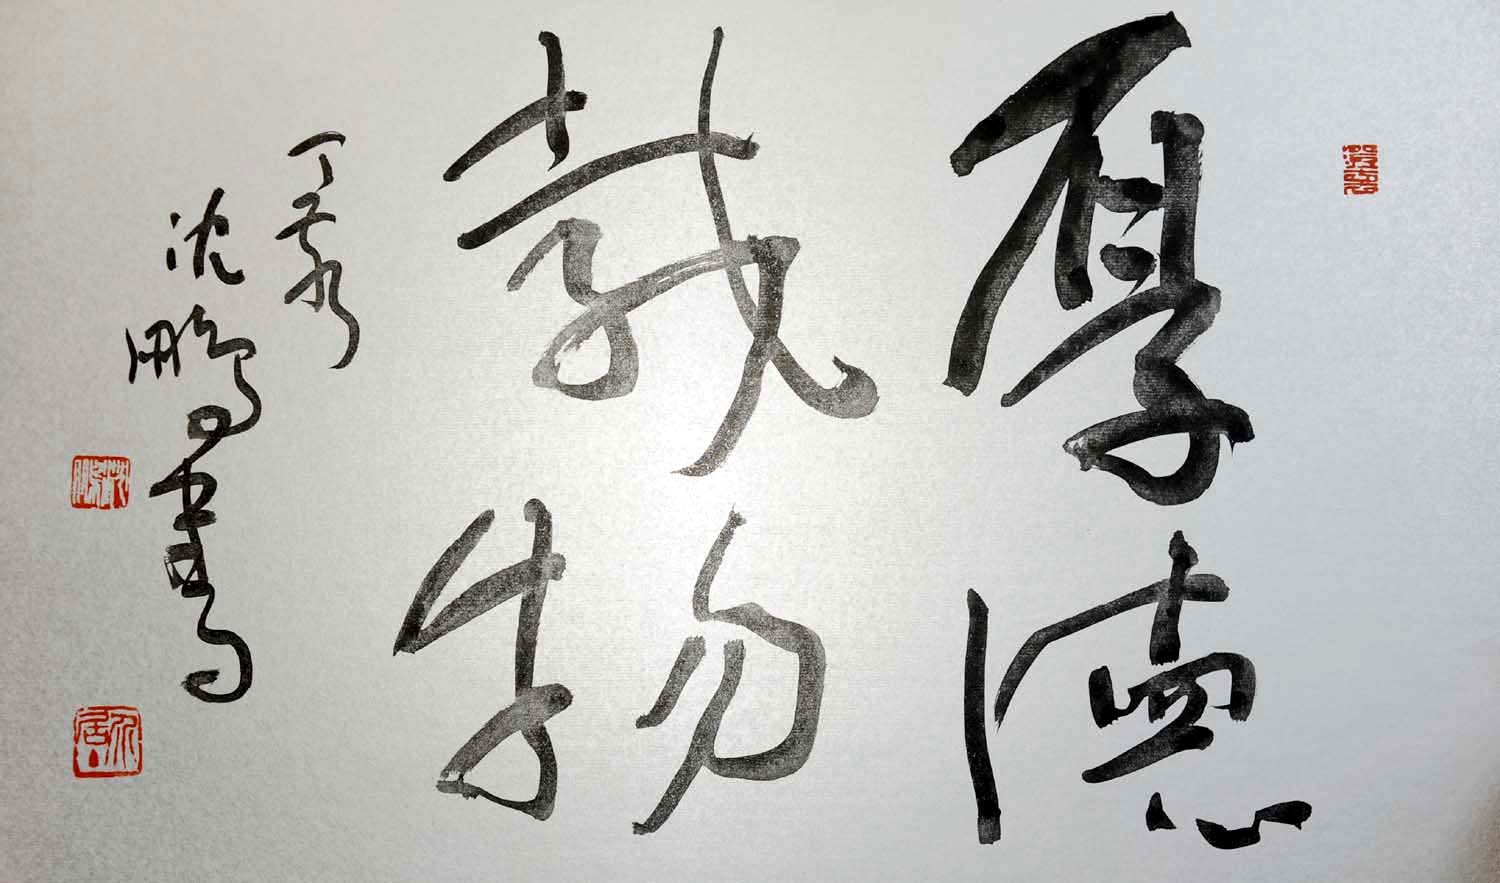 厚德
載物
丁亥
沈鵬書